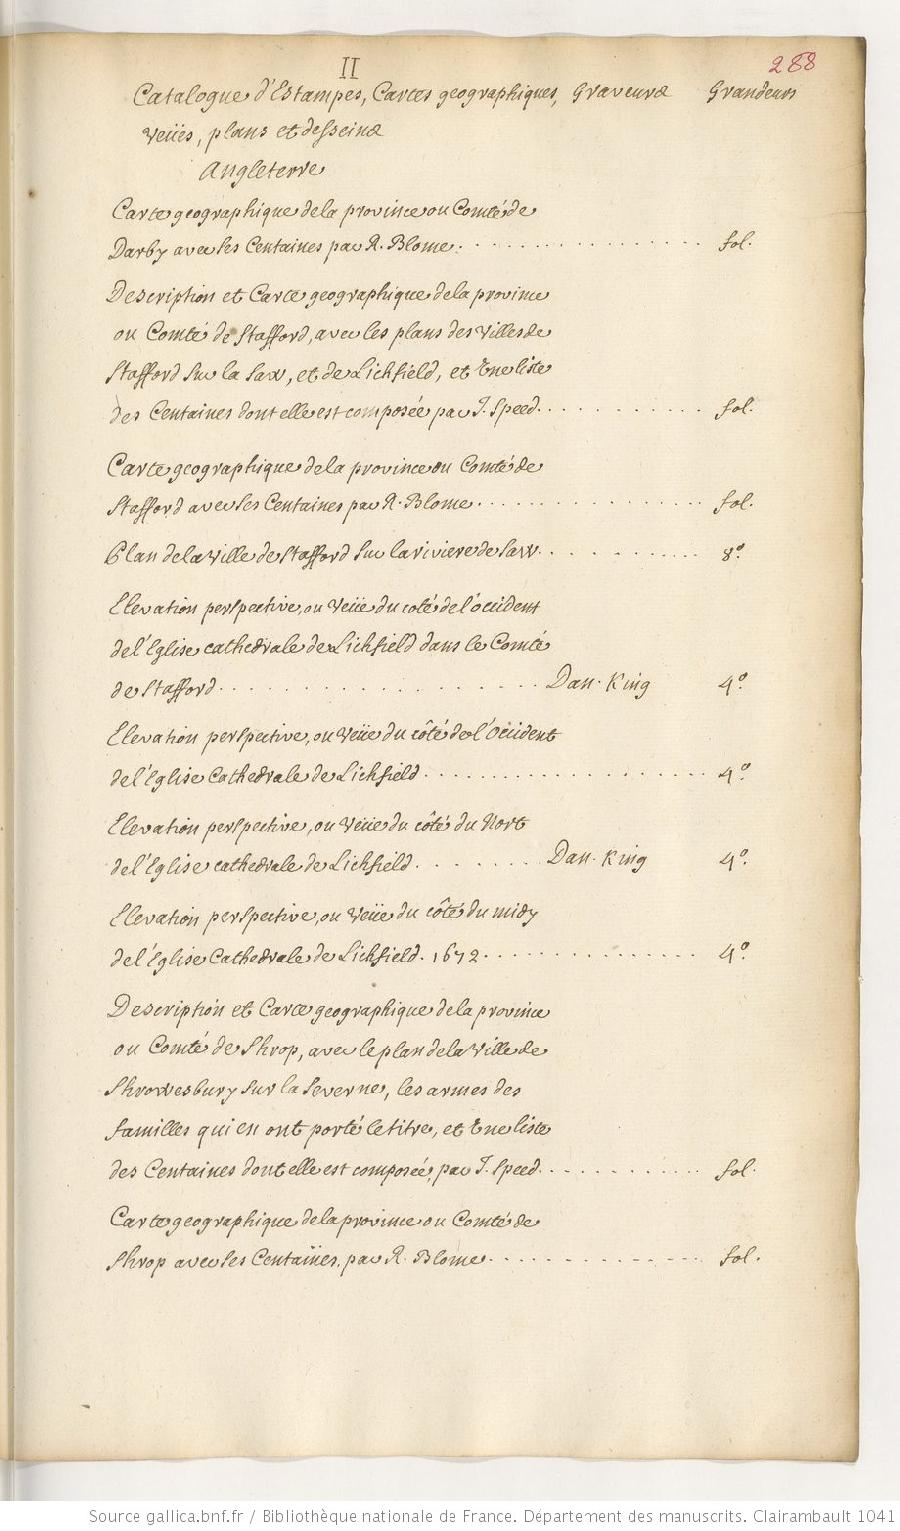 II
288
Catalogue d'Estampes, Cartes geographiques, Graveurs Grandeurs
veües, plans et desseins
Angleterre
Carte geographique de la province ou Comté de
Darby avec ses Centaines par R. Blome. fol.
Description et Carte geographique de la province
ou Comté de Stafford, avec les plans des Villes de
Stafford sur la Saw, et de Lichfield, et Une liste
des Centaines dont elle est composée par J. Speed. fol.
Carte geographique de la province ou Comté de
Stafford avec ses Centaines par R. Blome. fol.
Plan de la Ville de Stafford sur la riviere de Saw. 8º.
Elevation perspective, ou Veüe du coté de l'occident
de l'Eglise cathedrale de Lichfield dans le Comté
de Stafford. Dan. King 4º.
Elevation perspective, ou Veüe du côté de l'Occident
de l'Eglise Cathedrale de Lichfield. 4º.
Elevation perspective, ou Veüe du côté du Nort
de l'Eglise cathedrale de Lichfield. Dan. King 4º.
Elevation perspective, ou Veüe du côté du midy
de l'Eglise Cathedrale de Lichfield. 1672. 4º.
Description et Carte geographique de la province
ou Comté de Shrop, avec le plan de la Ville de
Shrowesbury sur la Severne, les armes des
familles qui en ont porté le titre, et Une liste
des Centaines dont elle est composée, par J. Speed. fol.
Carte geographique de la province ou Comté de
Shrop avec ses Centaines. par R. Blome. fol.
Source gallica.bnf.fr / Bibliothèque nationale de France. Département des manuscrits. Clairambault 1041